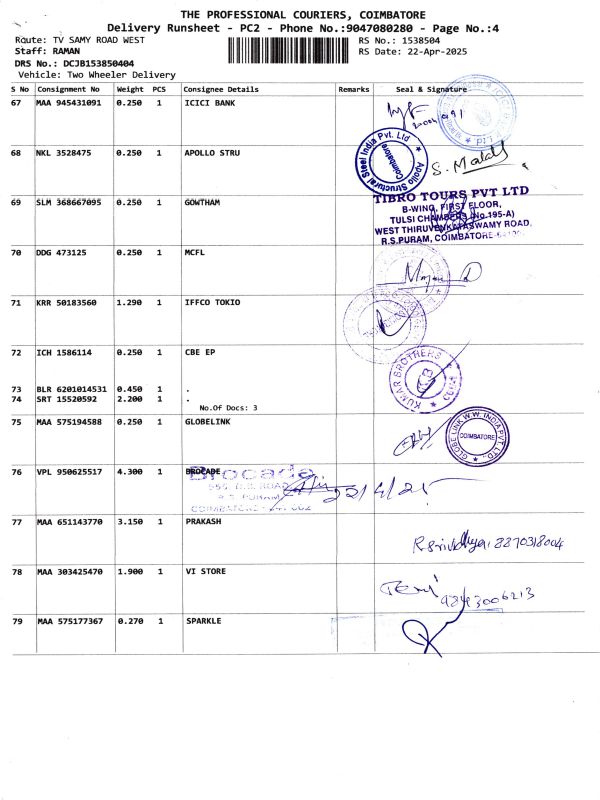 THE PROFESSIONAL COURIERS, COIMBATORE
Delivery Runsheet - PC2 - Phone No.:9047080280 - Page No.:4
Route: TV SAMY ROAD WEST RS No.: 1538504
Staff: RAMAN RS Date: 22-Apr-2025
DRS No.: DCJB153850404
Vehicle: Two Wheeler Delivery
S No Consignment No Weight PCS Consignee Details Remarks Seal & Signature
67 MAA 945431091 0.250 1 ICICI BANK
68 NKL 3528475 0.250 1 APOLLO STRU
Apollo Structural Steel India Pvt. Ltd
Coimbatore
69 SLM 368667095 0.250 1 GOWTHAM
TIBRO TOURS PVT LTD
B-WING, FIRST FLOOR,
TULSI CHAMBERS (No.195-A)
WEST THIRUVENKATASWAMY ROAD,
R.S.PURAM, COIMBATORE
70 DDG 473125 0.250 1 MCFL
71 KRR 50183560 1.290 1 IFFCO TOKIO
72 ICH 1586114 0.250 1 CBE EP
KUMAR BROTHERS
73 BLR 6201014531 0.450 1 .
74 SRT 15520592 2.200 1 .
No.Of Docs: 3
75 MAA 575194588 0.250 1 GLOBELINK
GLOBE LINK W.W. INDIA PVT. LTD.
COIMBATORE
76 VPL 950625517 4.300 1 BROCADE
Brocade
R.S. PURAM
22/4/25
77 MAA 651143770 3.150 1 PRAKASH
R Srividhya 8270318004
78 MAA 303425470 1.900 1 VI STORE
9843006213
79 MAA 575177367 0.270 1 SPARKLE